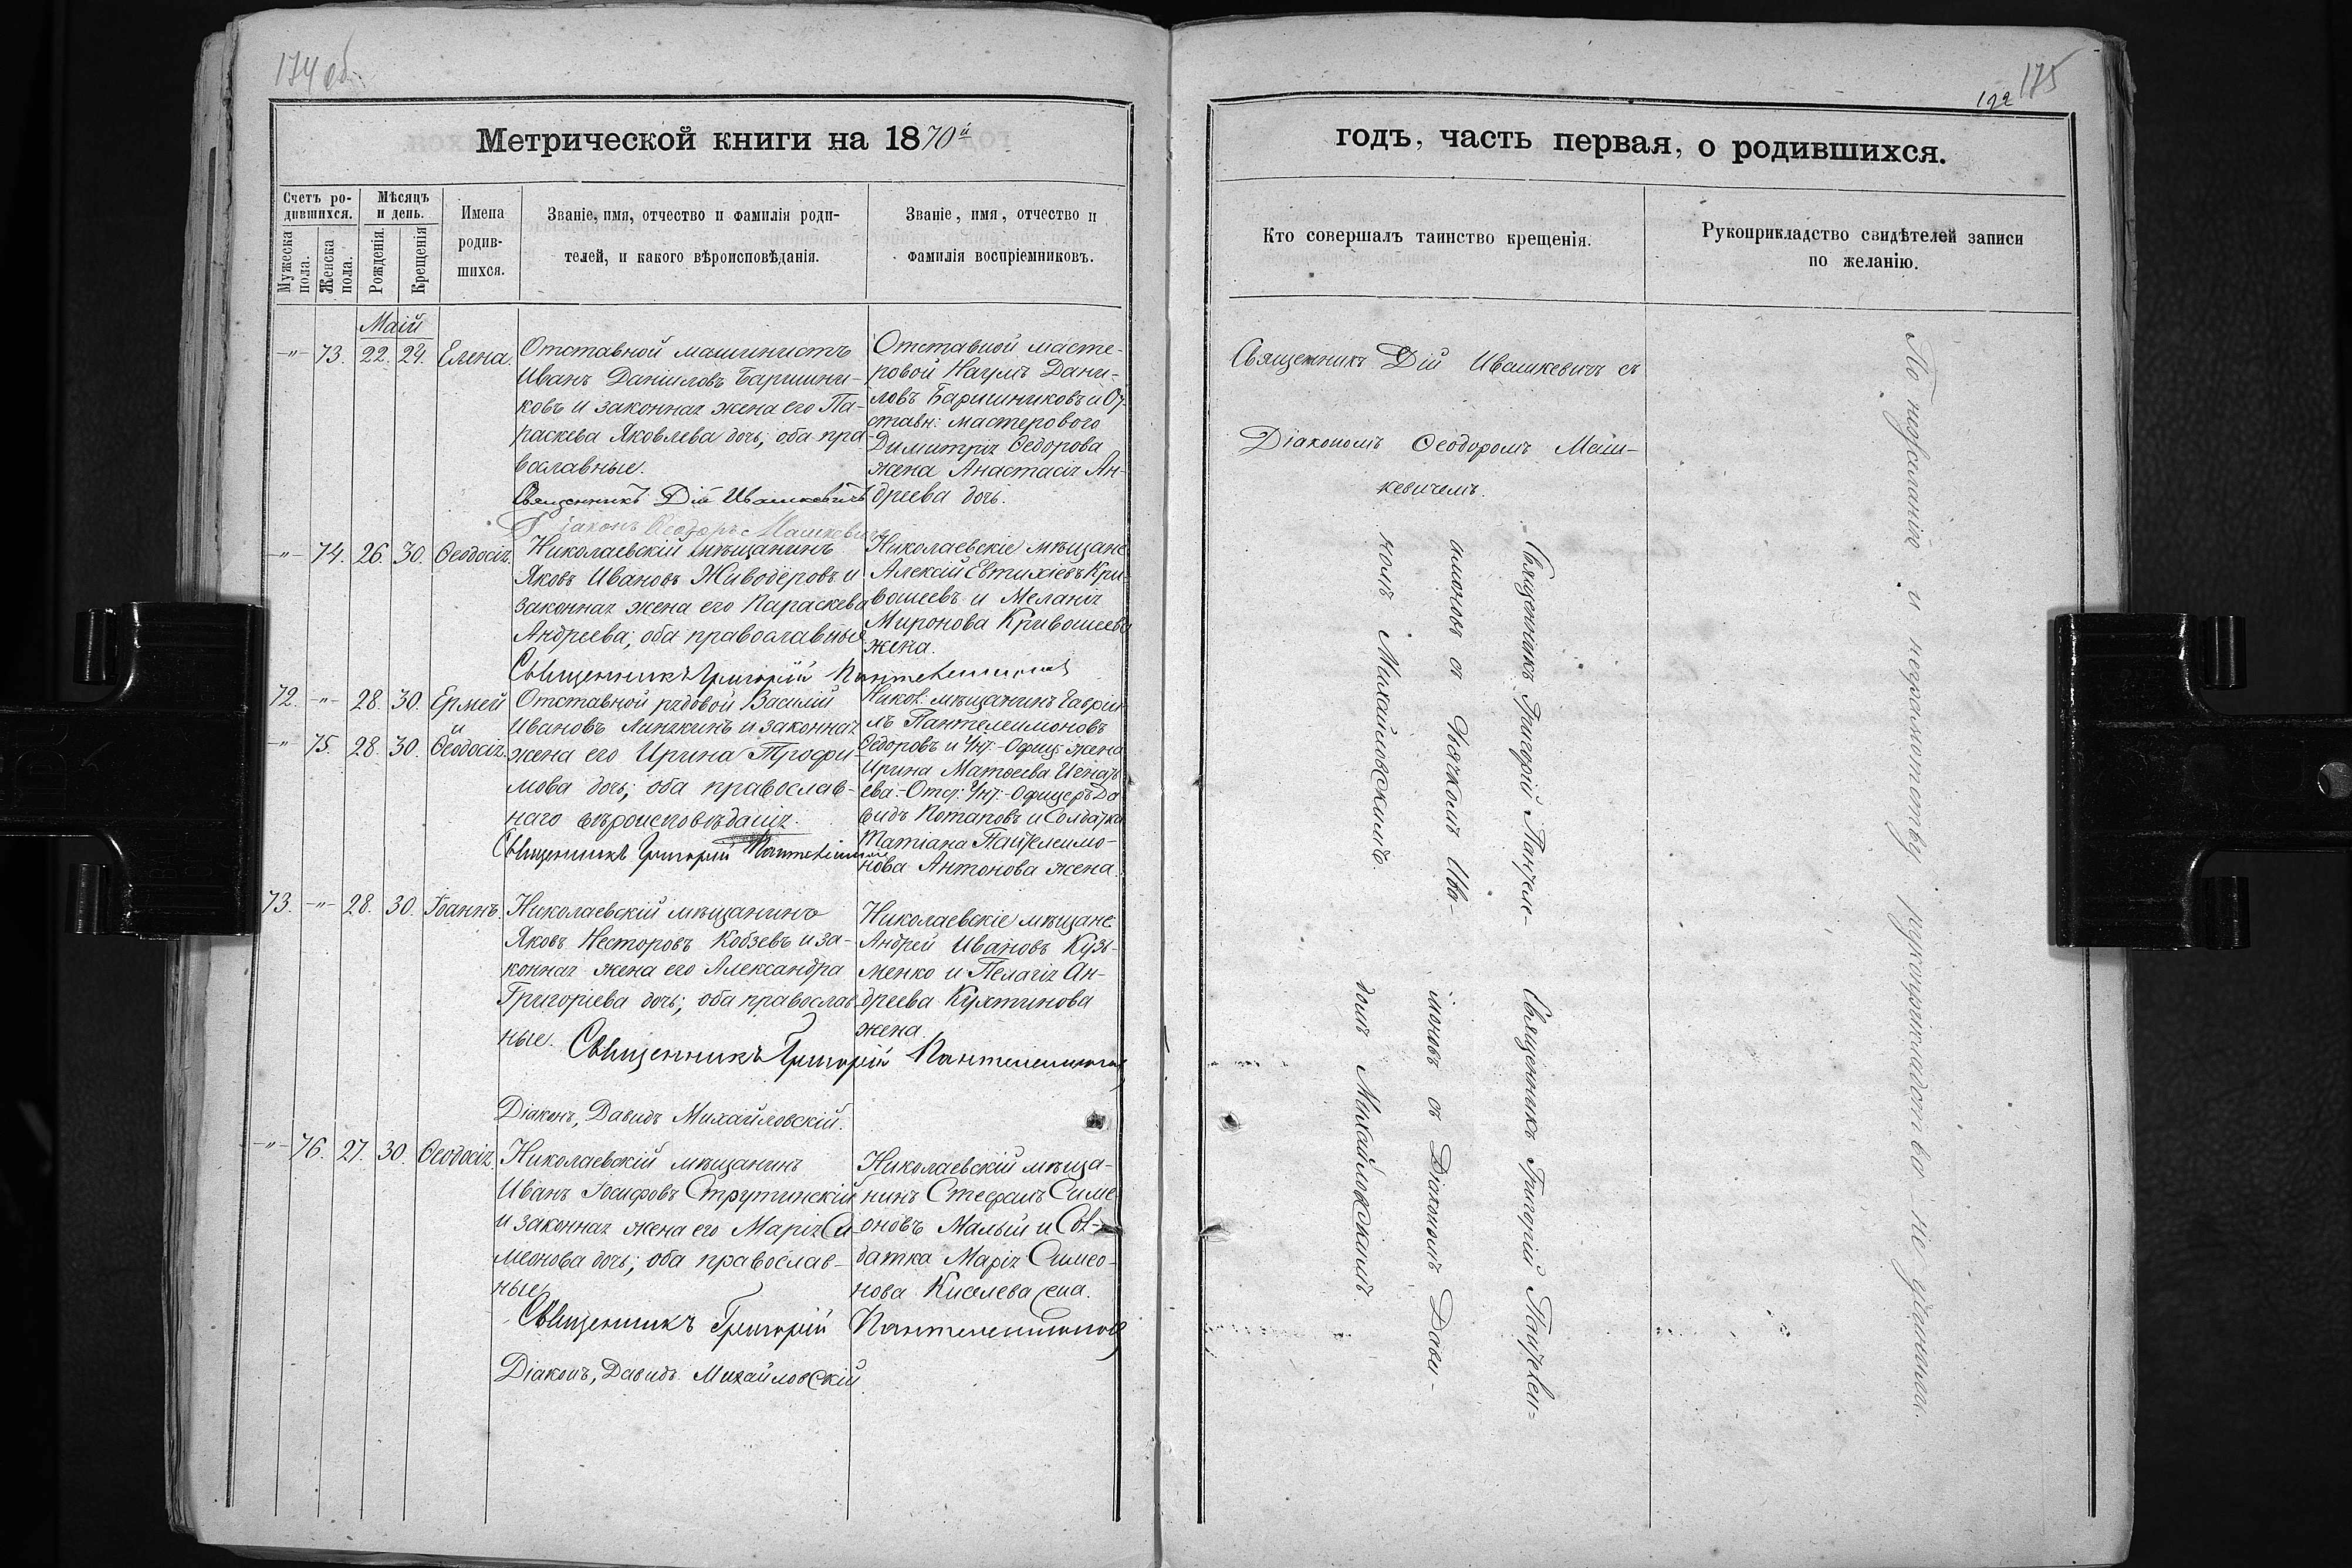 174 об.
Метрической книги на 1870й
Счетъ ро-
дившихся.
Мѣсяцъ
и день.
Мужеска
пола.
Женска
пола.
Рожденія.
Крещенія
Имена
родив-
шихся.
Званіе, имя, отчество и фамилія роди-
телей, и какого вѣроисповѣданія.
Званіе, имя, отчество и
фамилія воспріемниковъ.
Маій
-"- 73. 22. 24. Елена.
Отставной машинистъ
Иванъ Даніиловъ Баришни-
ковъ и законная жена его Па-
раскева Яковлева дочь, оба пра-
вославные.
Священникъ Дій Ивашкевичъ
Діаконъ Ѳеодоръ Машкевичъ
Отставной масте-
ровой Наумъ Дани-
ловъ Баришниковъ и От-
ставн: мастероваго
Димитрія Ѳедорова
жена Анастасія Ан-
дреева дочь.
-"- 74. 26. 30. Ѳеодосія.
Николаевскій мѣщанинъ
Яковъ Ивановъ Живодеровъ и
законная жена его Параскева
Андреева, оба православные
Священникъ Григорій Пантелеимоновъ
Николаевскіе мѣщане
Алексій Евтихіевъ Кри-
вошеевъ и Меланія
Миронова Кривошеева
жена.
72. -"- 28. 30. Ермей
и
-"- 75. 28. 30. Ѳеодосія.
Отставной рядовой Василій
Ивановъ Линякинъ и законная
жена его Ирина Трофи-
мова дочь; оба православ-
наго вѣроисповѣданія.
Священникъ Григорій Пантелеимоновъ
Никол: мѣщанинъ Гаврі-
лъ Пантелеимоновъ
Ѳедоровъ и Унт:-Офиц: жена
Ирина Матѳеева Игнать-
ева.-Отст: Унт:-Офицеръ Да-
видъ Потаповъ и Солдатка
Татіана Пантелеимо-
нова Антонова жена.
73. -"- 28. 30. Іоаннъ.
Николаевскій мѣщанинъ
Яковъ Несторовъ Кобзевъ и за-
конная жена его Александра
Григоріева дочь; оба православ-
ные.
Священникъ Григорій Пантелеимоновъ
Діаконъ, Давидъ Михайловскій.
Николаевскіе мѣщане
Андрей Ивановъ Кузь-
менко и Пелагія Ан-
дреева Кухтинова
жена.
-"- 76. 27. 30. Ѳеодосія.
Николаевскій мѣщанинъ
Иванъ Іосифовъ Струтинскій
и законная жена его Марія Си-
меонова дочь; оба православ-
ные
Священникъ Григорій Пантелеимоновъ
Діаконъ, Давидъ Михайловскій.
Николаевскій мѣща-
нинъ Стефанъ Симе-
оновъ Малый и Сол-
датка Марія Симео-
нова Киселева
192 175
годъ, часть первая, о родившихся.
Кто совершалъ таинство крещенія.
Рукоприкладство свидѣтелей записи
по желанію.
Священникъ Дій Ивашкевичъ съ
Діакономъ Ѳеодоромъ Маш-
кевичемъ.
Священникъ Григорій Пантеле-
имоновъ съ Дьячкомъ Ива-
номъ Михайловскимъ.
Священникъ Григорій Пантелеи-
моновъ съ Діакономъ Дави-
домъ Михайловскимъ.
По нежеланію и неграмотству рукоприкладство не учинили.